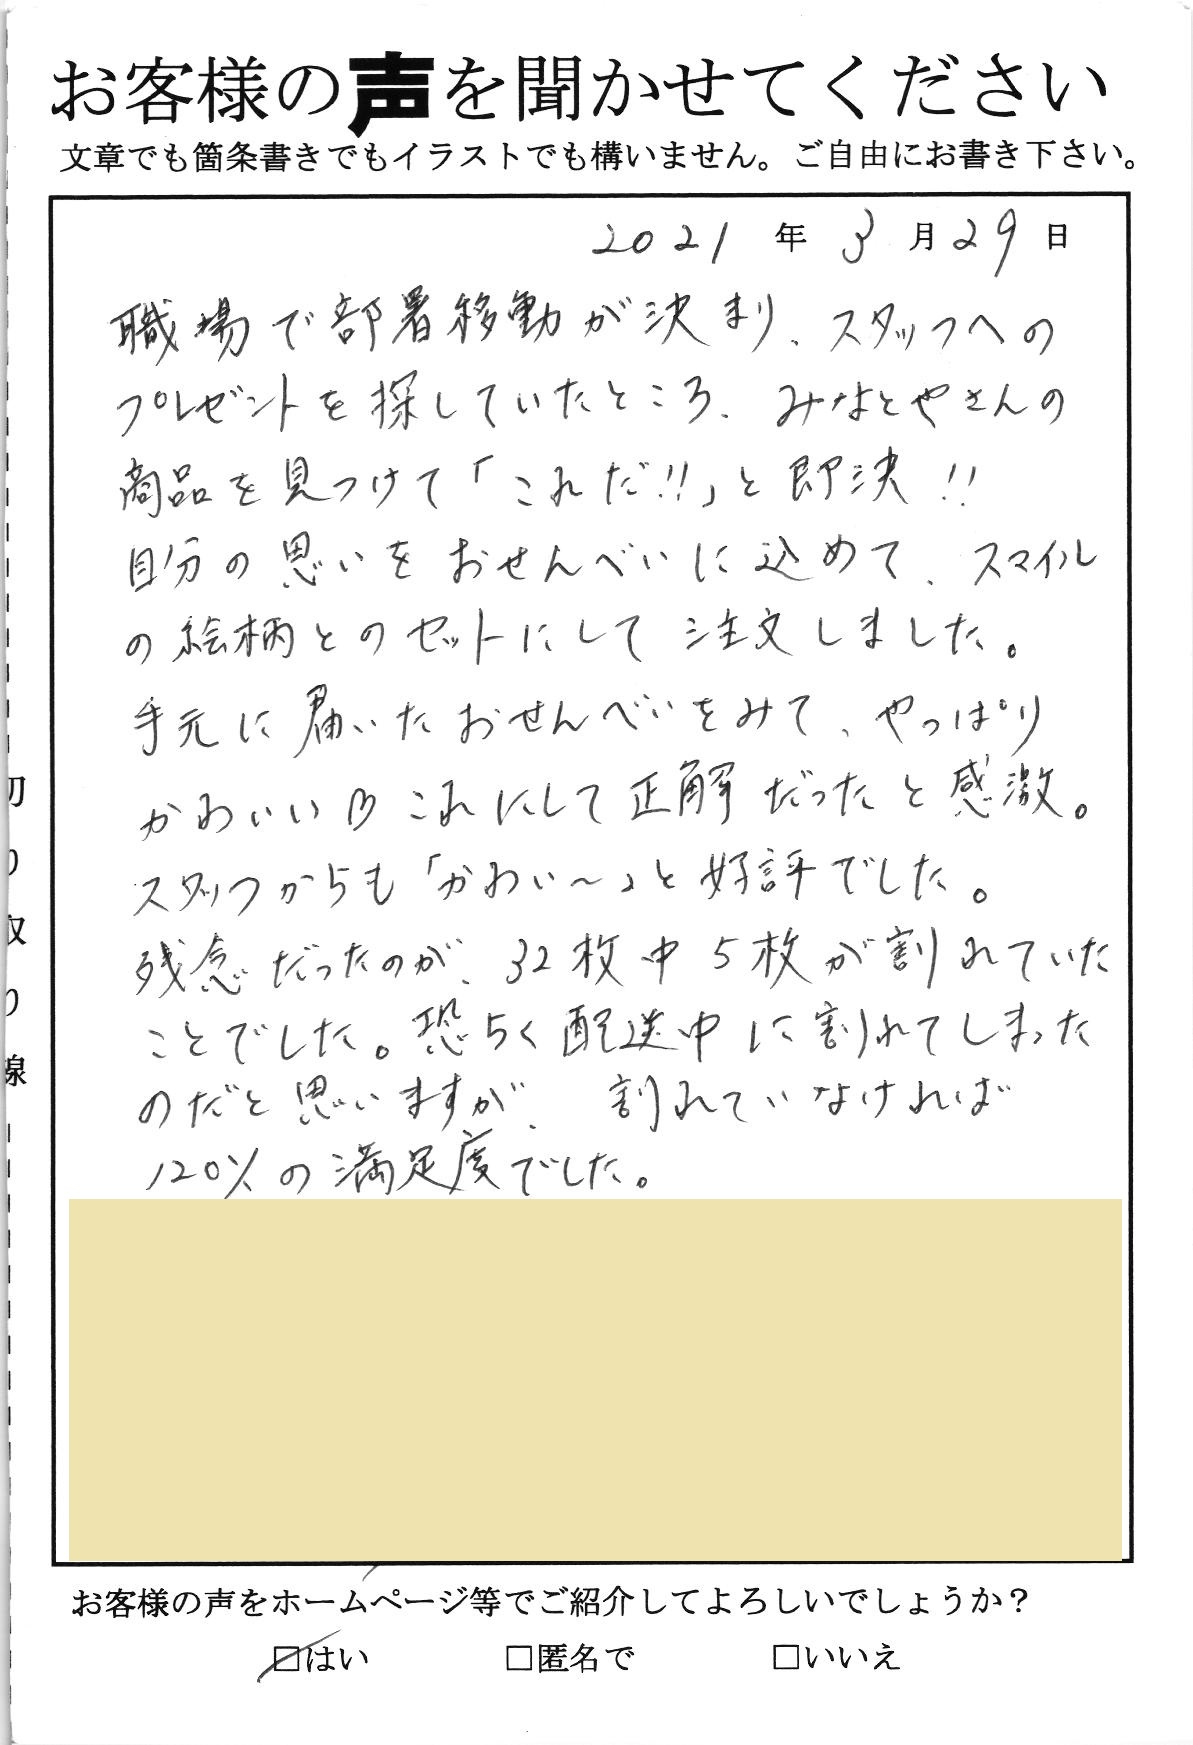 お客様の声を聞かせてください
文章でも箇条書きでもイラストでも構いません。ご自由にお書き下さい。
2021年3月29日
職場で部署移動が決まり、スタッフへの
プレゼントを探していたところ、みなとやさんの
商品を見つけて「これだ!!」と即決!!
自分の思いをおせんべいに込めて、スマイル
の絵柄とのセットにして注文しました。
手元に届いたおせんべいをみて、やっぱり
かわいい♡これにして正解だったと感激。
スタッフからも「かわい〜」と好評でした。
残念だったのが、32枚中5枚が割れていた
ことでした。恐らく配送中に割れてしまった
のだと思いますが、割れていなければ
120%の満足度でした。
切り取り線
お客様の声をホームページ等でご紹介してよろしいでしょうか?
☑はい □匿名で □いいえ